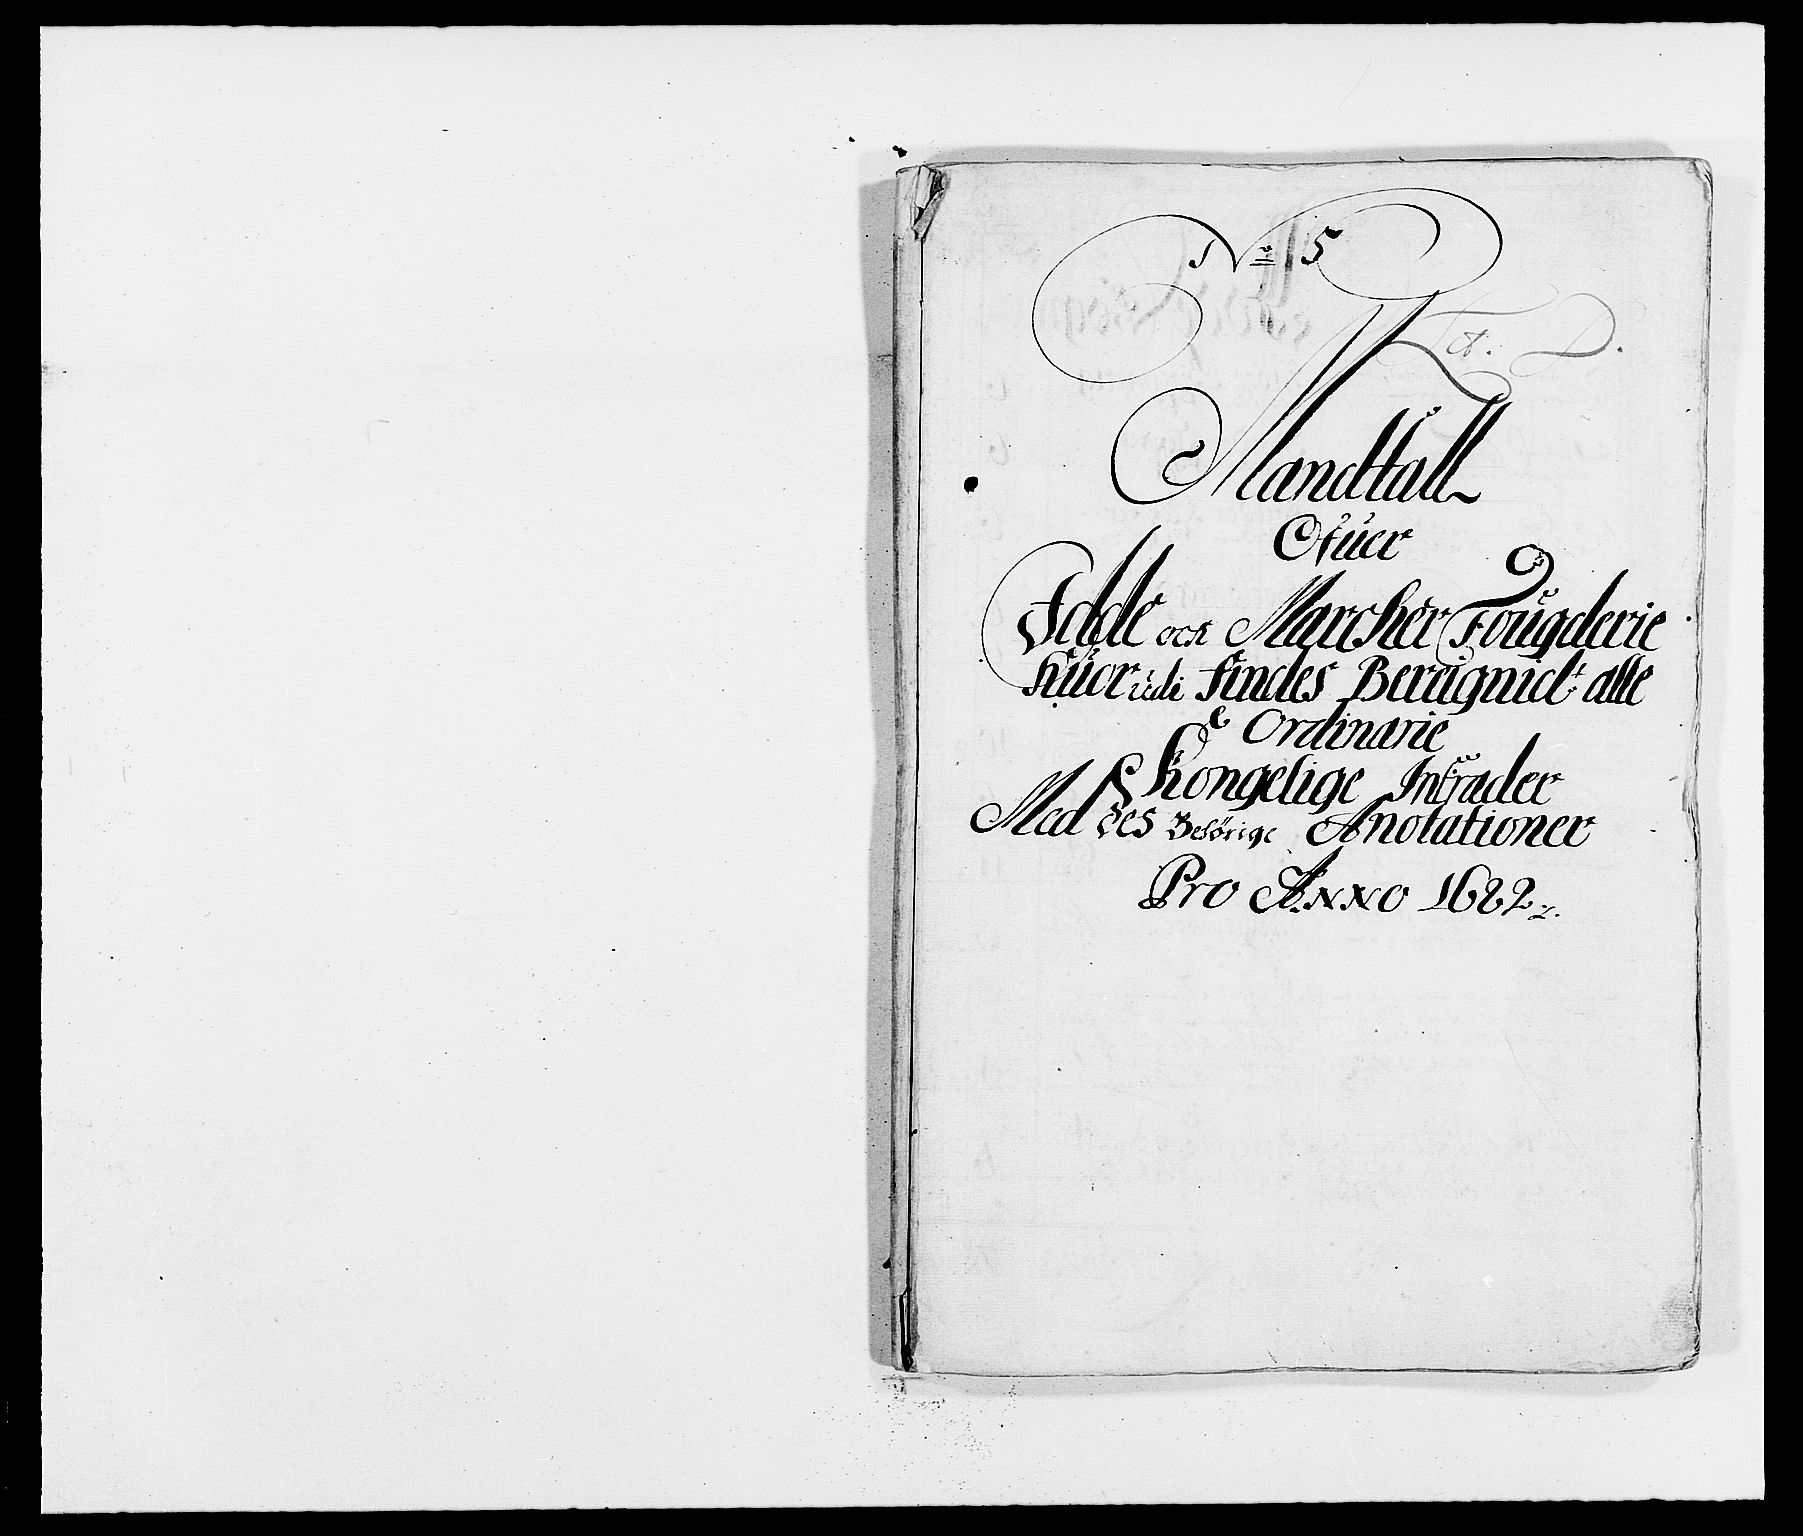 No 5
Lit. D.
Mandtall
Ofuer
Idde och Marcher Fougderie
Huor udi findes Bereignidt alle
Ordinarie
Kongelige Intrader
Med des Behörige Anotationer
Pro Anno 1682